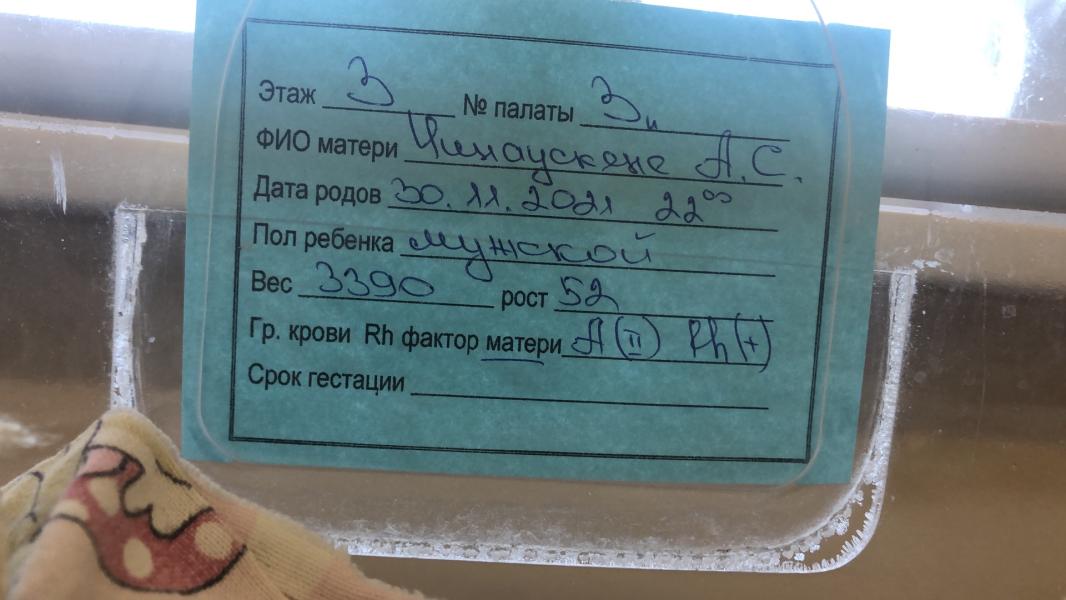 Этаж 3 № палаты 3и
ФИО матери Чинаускене А.С.
Дата родов 30.11.2021 22⁰⁵
Пол ребенка мужской
Вес 3390 рост 52
Гр. крови Rh фактор матери А(II) Rh(+)
Срок гестации